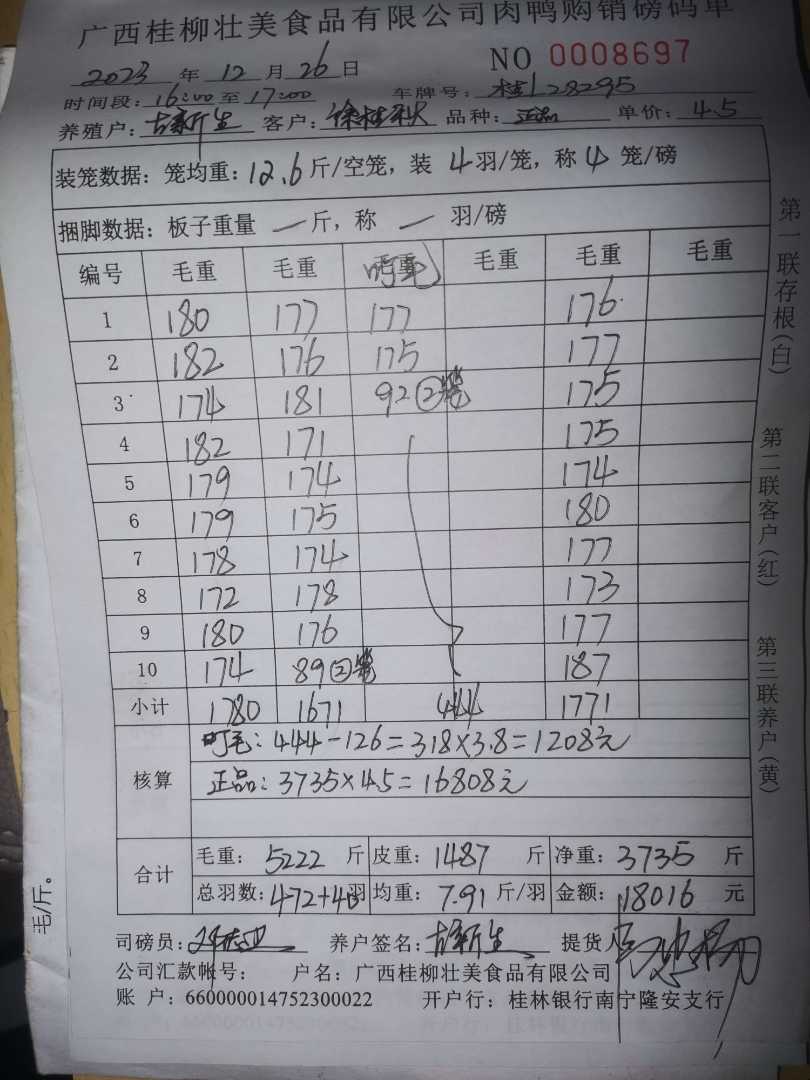 广西桂柳壮美食品有限公司肉鸭购销磅码单
NO 0008697
2023 年 12 月 26 日
时间段: 16:00 至 17:00 车牌号: 桂L28295
养殖户: 古新生 客户: 徐桂秋 品种: 正品 单价: 4.5
装笼数据: 笼均重: 12.6 斤/空笼, 装 4 羽/笼, 称 4 笼/磅
捆脚数据: 板子重量 — 斤, 称 — 羽/磅
编号 毛重 毛重 毛重 毛重 毛重
1 180 177 177 176
2 182 176 175 177
3 174 181 92 ②笼 175
4 182 171 175
5 179 174 174
6 179 175 180
7 178 174 177
8 172 178 173
9 180 176 177
10 174 89 ②笼 187
小计 1780 1671 444 1771
核算
叮毛: 444-126=318×3.8=1208元
正品: 3735×4.5=16808元
合计
毛重: 5222 斤 皮重: 1487 斤 净重: 3735 斤
总羽数: 472+40 羽 均重: 7.91 斤/羽 金额: 18016 元
司磅员: 养户签名: 古新生 提货人
公司汇款帐号: 户名: 广西桂柳壮美食品有限公司
账 户: 660000014752300022 开户行: 桂林银行南宁隆安支行
第一联存根(白) 第二联客户(红) 第三联养户(黄)
毛/斤。